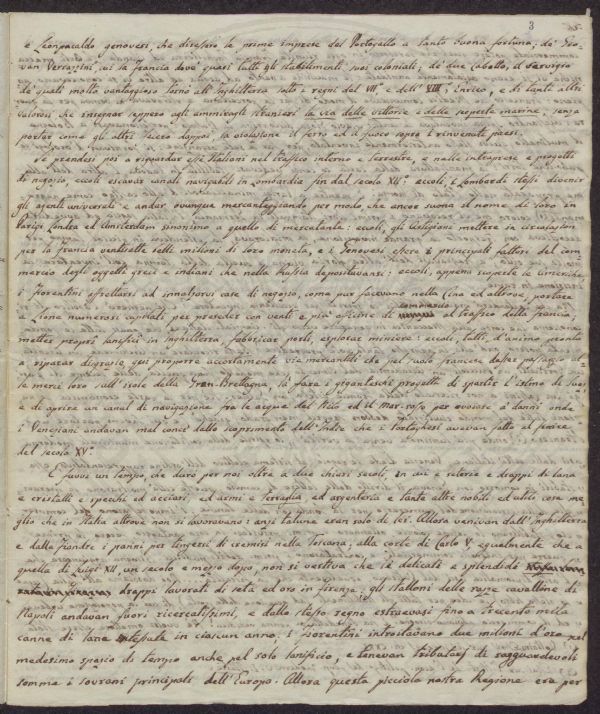 3
e Leonardo genovesi, che diressero le prime imprese del Portogallo a tanto buona fortuna; de' Gio-
van Verrazzini cui la Francia dové quasi tutti gli stabilimenti suoi coloniali; de' due Cabotto, il servigio
de' quali molto vantaggioso tornò all'Inghilterra sotto i regni del VII° e dell'VIII° Enrico, e di tanti altri
valorosi che insegnar seppero agli ammiragli stranieri la via delle vittorie e delle scoperte marine, senza
portar come gli altri fecero dappoi, la violazione il ferro ed il fuoco sopra i rinvenuti paesi.
Se prendesi poi a riguardar essi Italiani nel traffico interno e terrestre, e nelle intraprese e progetti
di negozio, eccoli escavar canali navigabili in Lombardia fin dal secolo XII°: eccoli, i Lombardi stessi divenir
gli agenti universali e andar ovunque mercanteggiando per modo che ancor suona il nome di loro in
Parigi Londra ed Amsterdam sinonimo a quello di mercatante: eccoli, gli Astigiani mettere in circolazion
per la Francia ventisette mila milioni di oro moneta, e i Genovesi essere i principali fattori del com-
mercio degli oggetti greci e indiani che nella Russia depositavansi: eccoli, appena scoperte le Americhe,
i Fiorentini affrettarsi ad innalzarvi case di negozio, come pur facevano nella Cina ed altrove, portare
a Lione numerosi capitali per preseder con venti e più officine di commercio al traffico della Francia;
metter propri lanifici in Inghilterra, fabbricar porti, esplorar miniere: eccoli, tutti, d'animo pronto
a riparar disgrazie, essi proporre accortamente vie mercantili che pel suolo francese dasser passaggio al-
le merci loro sull'isole della Gran-Bretagna, là fare i giganteschi progetti di spartir l'istmo di Suez
e di aprire un canal di navigazione fra le acque del Nilo ed il Mar-rosso per ovviare a' danni onde
i Veneziani andavan mal conci dallo scoprimento dell'Indie che i Portoghesi avevan fatto al finire
del secolo XV°.
E fuvvi un tempo, che durò per noi oltre a due chiari secoli, in cui e seterie e drappi di lana
e cristalli e specchi ed acciari, ed armi e ed argenteria e tante altre nobili ed utili cose me-
glio che in Italia altrove non si lavoravano: anzi talune eran solo di lei. Allora venivan dall'Inghilterra
e dalla Fiandra i panni per tingersi di cremisi nella Toscana; alla corte di Carlo V. egualmente che a
quella di Luigi XII, un secolo e mezzo dopo, non si vestiva che i delicati e splendidi
drappi lavorati di seta ed oro in Firenze; gli stalloni delle razze cavalline di
Napoli andavan fuori ricercatissimi, e dallo stesso regno estraevasi fino a trecento mila
canne di lane tessute in ciascun anno; i Fiorentini introitavano due milioni d'oro nel
medesimo spazio di tempo anche pel solo lanificio, e tenevan tributarj di ragguardevoli
somme i sovrani principali dell'Europa. Allora questa picciola nostra Regione era per